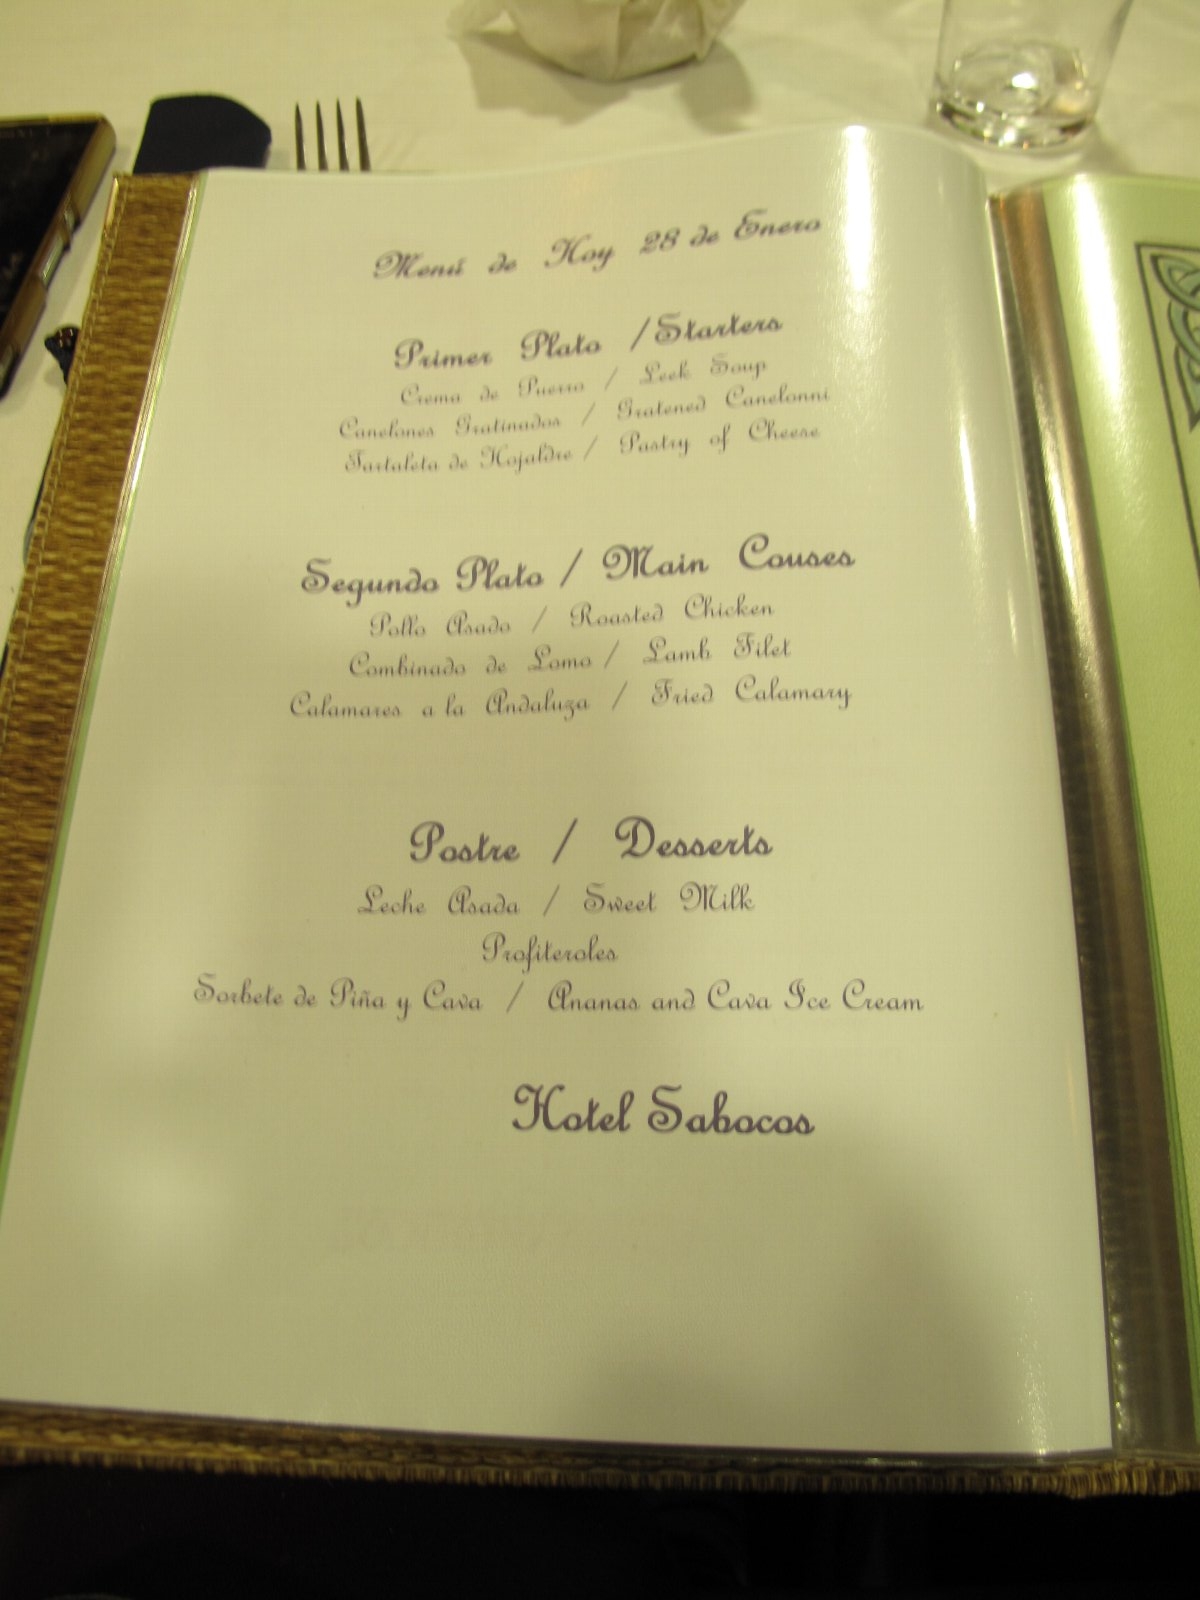 Menú de Hoy 28 de Enero
Primer Plato / Starters
Crema de Puerro / Leek Soup
Canelones Gratinados / Gratened Canelonni
Tartaleta de Hojaldre / Pastry of Cheese
Segundo Plato / Main Couses
Pollo Asado / Roasted Chicken
Combinado de Lomo / Lamb Filet
Calamares a la Andaluza / Fried Calamary
Postre / Desserts
Leche Asada / Sweet Milk
Profiteroles
Sorbete de Piña y Cava / Ananas and Cava Ice Cream
Hotel Sabocos